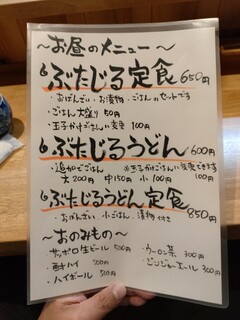 ～お昼のメニュー～
ぶたじる定食 650円
・おばんざい・お漬物・ごはんセットです
・ごはん大盛り 50円
・玉子かけごはんに変更 100円
ぶたじるうどん 600円
・追加でごはん ※玉子かけごはんに変更できます
大200円 中150円 小100円 100円
ぶたじるうどん定食 850円
・おばんざい 小ごはん 漬物付き
～おのみもの～
・サッポロ生ビール 500円
・ウーロン茶 300円
・酎ハイ 500円
・ジンジャエール 300円
・ハイボール 500円